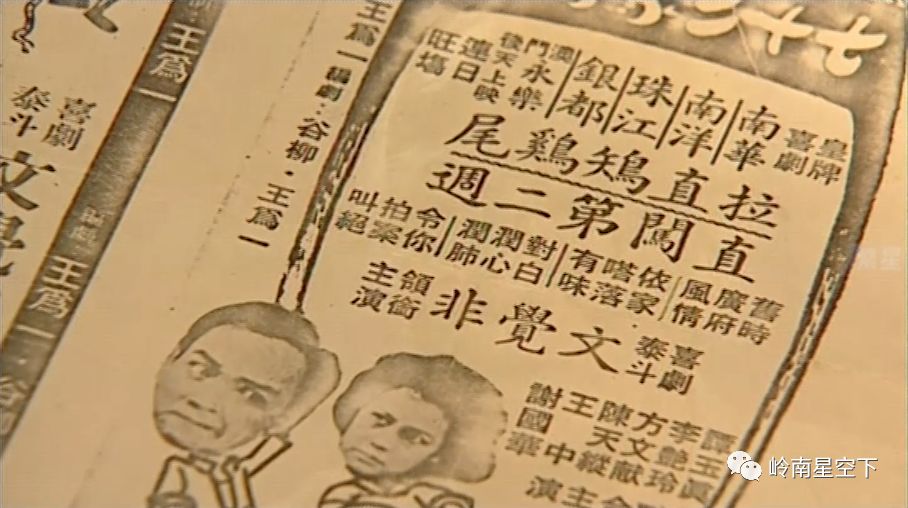 七十二
皇牌喜劇
南華
南洋
珠江
銀都
澳門永樂
後天上映
連日旺場
拉直鴙鷄尾
直闖第二週
舊時廣府風情
依家嗒落有味
對白潤心潤肺
令你拍案叫絕
喜劇泰斗
文覺非
領銜主演
譚玉真
李艷玲
方文献
陳天縱
王中
謝國華
主演
王爲一
編劇：谷柳·王爲一
王爲一
喜劇泰斗
文覺
編劇
王爲一·谷
岭南星空下